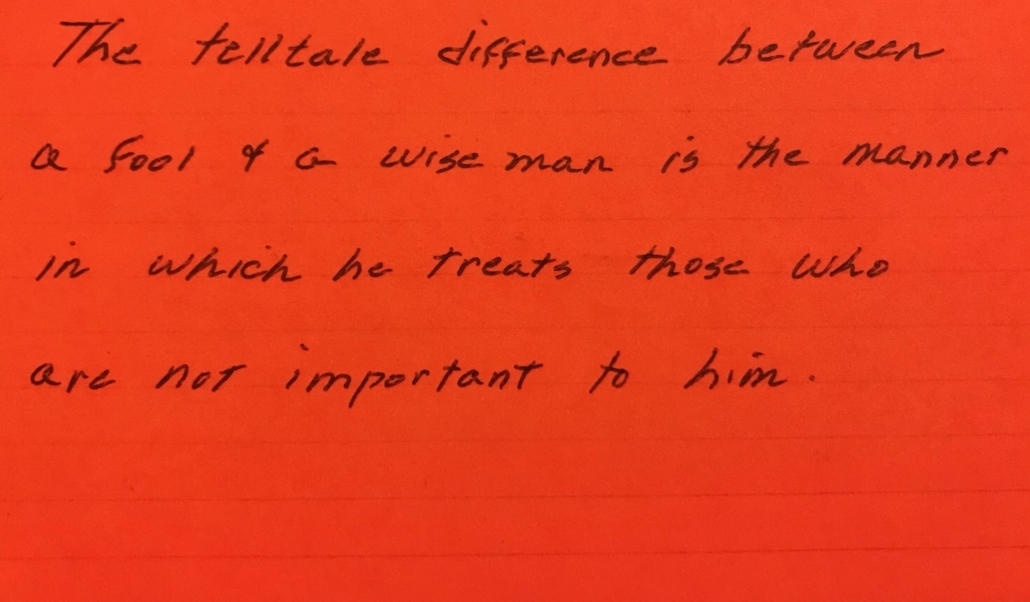 The telltale difference between
a fool & a wise man is the manner
in which he treats those who
are not important to him.